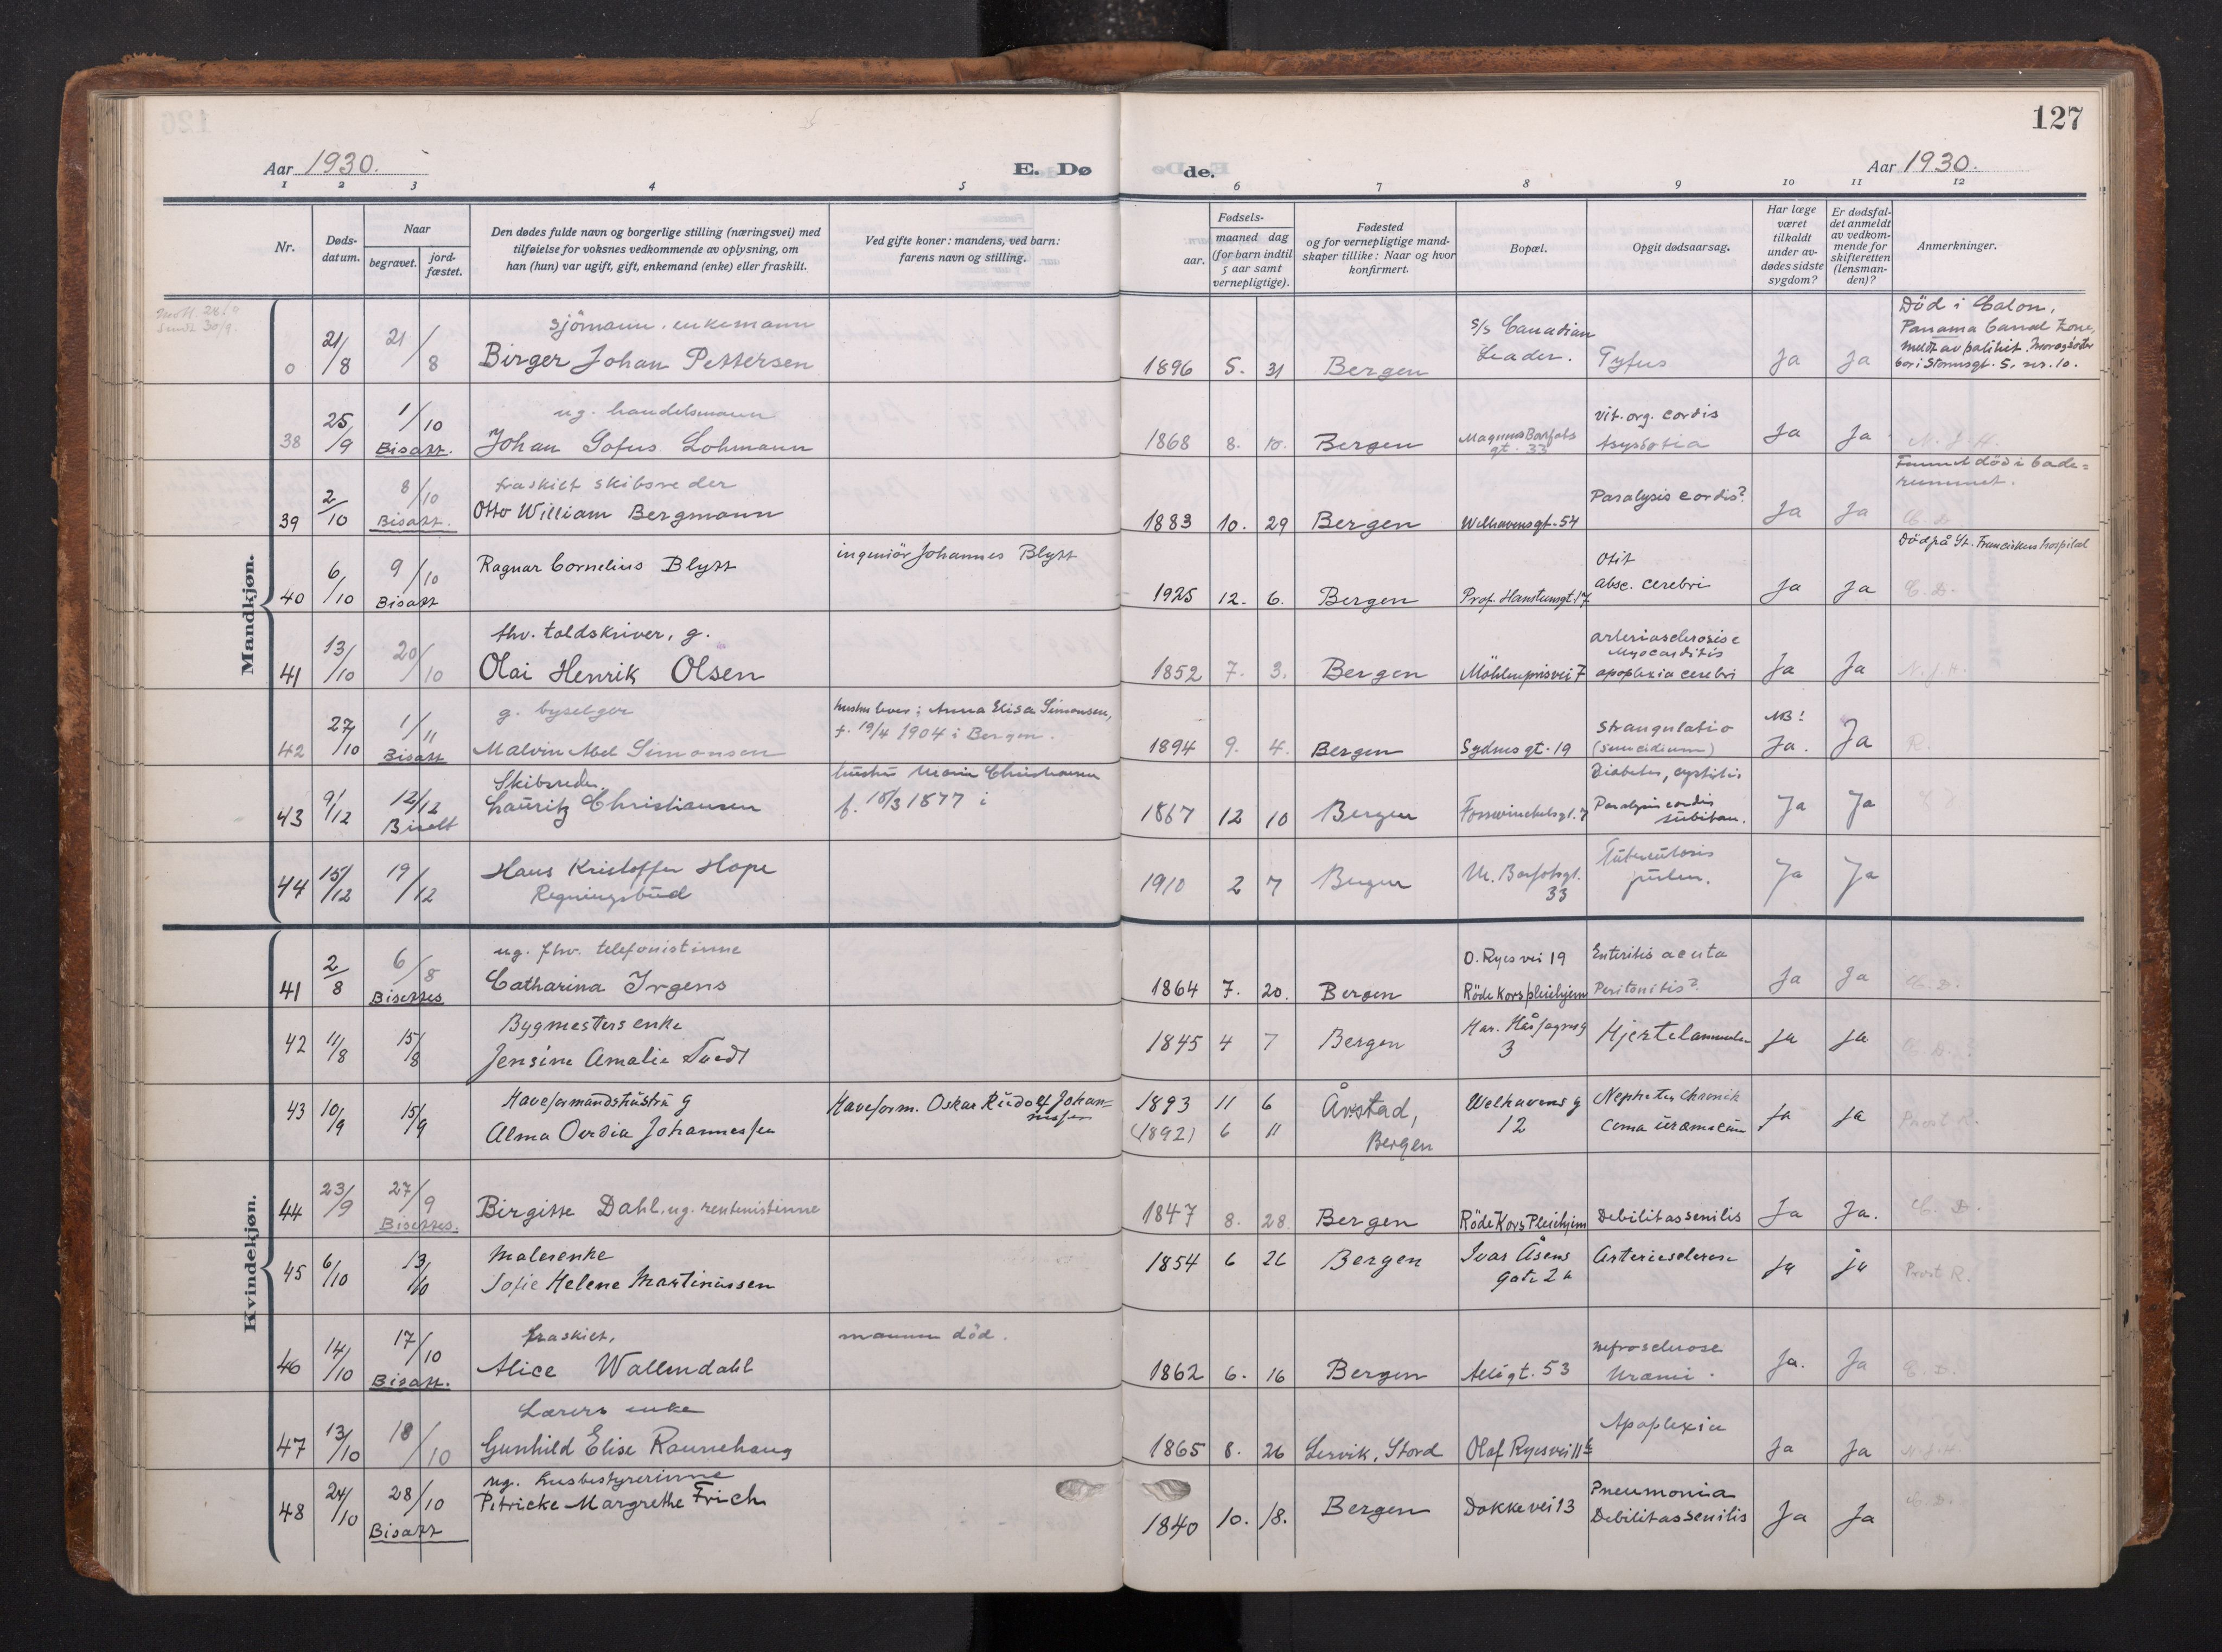 127
Aar 1930.
E. Døde.
Aar 1930.
1 2 3 4 5 6 7 8 9 10 11 12
Nr.
Døds-
datum.
Naar
begravet.
jord-
fæstet.
Den dødes fulde navn og borgerlige stilling (næringsvei) med
tilføielse for voksnes vedkommende av oplysning, om
han (hun) var ugift, gift, enkemand (enke) eller fraskilt.
Ved gifte koner: mandens, ved barn:
farens navn og stilling.
Fødsels-
aar.
maaned dag
(for barn indtil
5 aar samt
vernepligtige).
Fødested
og for vernepligtige mand-
skaper tillike: Naar og hvor
konfirmert.
Bopæl.
Opgit dødsaarsag.
Har læge
været
tilkaldt
under av-
dødes sidste
sygdom?
Er dødsfal-
det anmeldt
av vedkom-
mende for
skifteretten
(lensman-
den)?
Anmerkninger.
Mandkjøn.
0 21/8 21/8 sjömann, enkemann
Birger Johan Pettersen
1896 5. 31 Bergen
s/s Canadian
Leader.
Tyfus Ja Ja
Död i Colon,
Panama Canal Zone,
38 25/9 1/10 Bisatt.
ug. handelsmann
Johan Sofus Lohmann
1868 8. 10. Bergen
Magnus Barfots
gt. 33
vit. org. cordis
Asystolia Ja Ja N.J.H.
39 2/10 8/10 Bisatt.
fraskilt skibsreder
Otto William Bergmann
1883 10. 29 Bergen Welhavensgt. 54
Paralysis cordis? Ja Ja
Funnet död i bade-
rummet.
C.D.
40 6/10 9/10 Bisatt
Ragnar Cornelius Blytt
ingeniör Johannes Blytt
1925 12. 6. Bergen Prof. Hansteensgt. 17
Otit
absc. cerebri Ja Ja
Död på St. Franciskus hospital
C.D.
41 13/10 20/10
fhv. toldskriver, g.
Olai Henrik Olsen
1852 7. 3. Bergen Möhlenprisvei 7
arteriosclerosis c
Myocarditis
apoplexia cerebri Ja Ja N.J.H.
42 27/10 1/11 Bisatt
g. byselger
Malvin Abel Simonsen
hustru lever: Anna Elisa Simonsen,
f. 19/4 1904 i Bergen.
1894 9. 4. Bergen Sydnesgt. 19
Strangulatio
(suicidium)
NB!
Ja. Ja R.
43 9/12 12/12 Biselt
Skibsreder
Lauritz Christiansen
hustru Maria Christiansen
f. 18/3 1877 i
1867 12 10 Bergen Fosswinckelsgt. 7
Diabetes, cystitis
Paralysis cordis
subitan. Ja Ja
44 15/12 19/12
Hans Kristoffer Hope
Regningsbud
1910 2 7 Bergen
M. Barfotsgt.
33
Tuberculosis
pulm. Ja Ja
Kvindekjøn.
41 2/8 6/8 Bisettes
ug. fhv. telefonistinne
Catharina Irgens
1864 7. 20. Bergen
O. Ryes vei 19
Röde Kors pleiehjem
Enteritis acuta
Peritonitis? Ja Ja C.D.
42 11/8 15/8
Bygmesters enke
Jensine Amalie Tvedt
1845 4 7 Bergen
Har. Hårfagresg
3
Hjertelammelse Ja Ja C.D.
43 10/9 15/9
Haveformandshustru g
Alma Ovedia Johannessen
Haveform. Oskar Rudolf Johan-
nessen
1893 11 6
(1892) 6 11
Årstad,
Bergen
Welhavens g
12
Nephrites Chronik
Coma urämicum Ja Ja Prost R.
44 23/9 27/9 Bisettes.
Birgitte Dahl, ug. rentenistinne
1847 8. 28. Bergen Röde Kors Pleiehjem
Debilitas senilis Ja Ja. C.D.
45 6/10 13/10
Malerenke
Sofie Helene Martinussen
1854 6 26 Bergen
Ivar Åsens
gate 2a
Arteriesclerose Ja ja Prost R.
46 14/10 17/10 Bisatt.
fraskilt,
Alice Wallendahl
mannen död.
1862 6. 16 Bergen Allégt. 53
nefrosclerose
Uræmi. Ja. Ja C.D.
47 13/10 18/10
Lærers enke
Gunhild Elise Raunehaug
1865 8. 26 Lervik, Stord Olaf Ryesvei 11b
Apoplexia Ja Ja N.J.H.
48 24/10 28/10 Bisatt
ug. husbestyrerinne
Petricke Margrethe Frich
1840 10. 18. Bergen Dokkevei 13
Pneumonia
Debilitas senilis Ja Ja C.D.